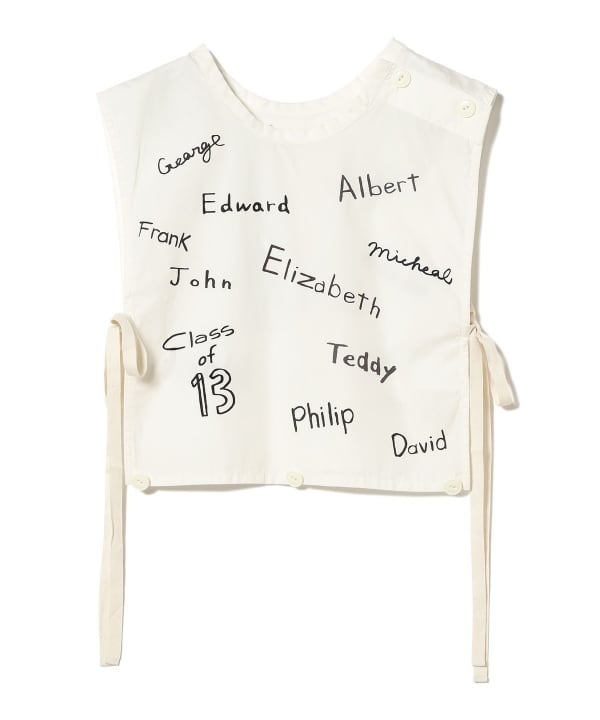 George
Albert
Edward
Frank
Micheal
John
Elizabeth
Class
of
13
Teddy
Philip
David